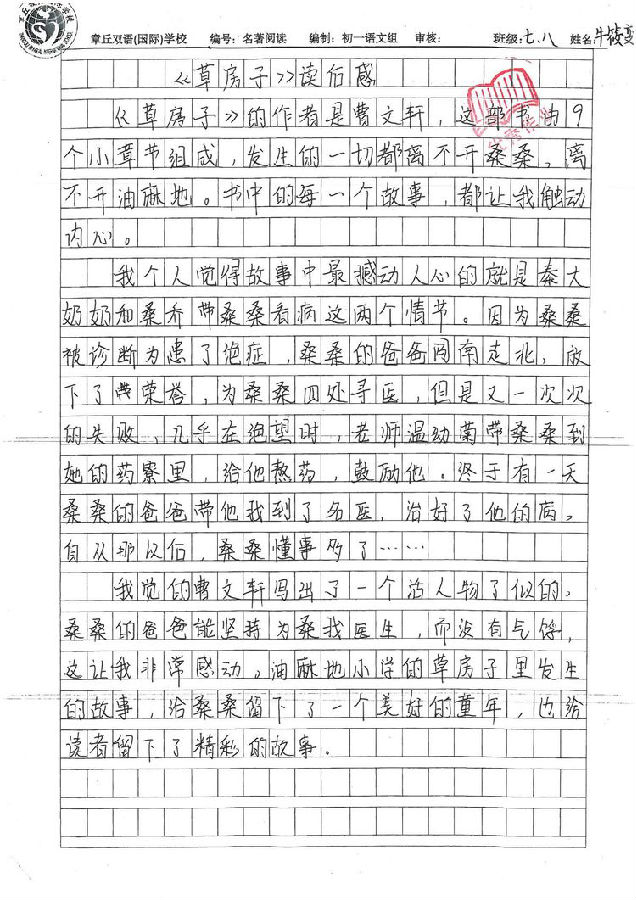 章丘双语(国际)学校 编号：名著阅读 编制：初一语文组 审核： 班级：七.八 姓名：牛筱雯
《草房子》读后感
《草房子》的作者是曹文轩，这部书由9
个小章节组成，发生的一切都离不开桑桑，离
不开油麻地。书中的每一个故事，都让我触动
内心。
我个人觉得故事中最撼动人心的就是秦大
奶奶和桑乔带桑桑看病这两个情节。因为桑桑
被诊断为患了绝症，桑桑的爸爸闯南走北，放
下了荣誉，为桑桑四处寻医，但是又一次次
的失败，几乎在绝望时，老师温幼菊带桑桑到
她的药寮里，给他熬药，鼓励他。终于有一天
桑桑的爸爸带他找到了名医，治好了他的病。
自从那以后，桑桑懂事多了……
我觉的曹文轩写出了一个活人物了似的，
桑桑的爸爸能坚持为桑找医生，而没有气馁，
这让我非常感动。油麻地小学的草房子里发生
的故事，给桑桑留下了一个美好的童年，也给
读者留下了精彩的故事.